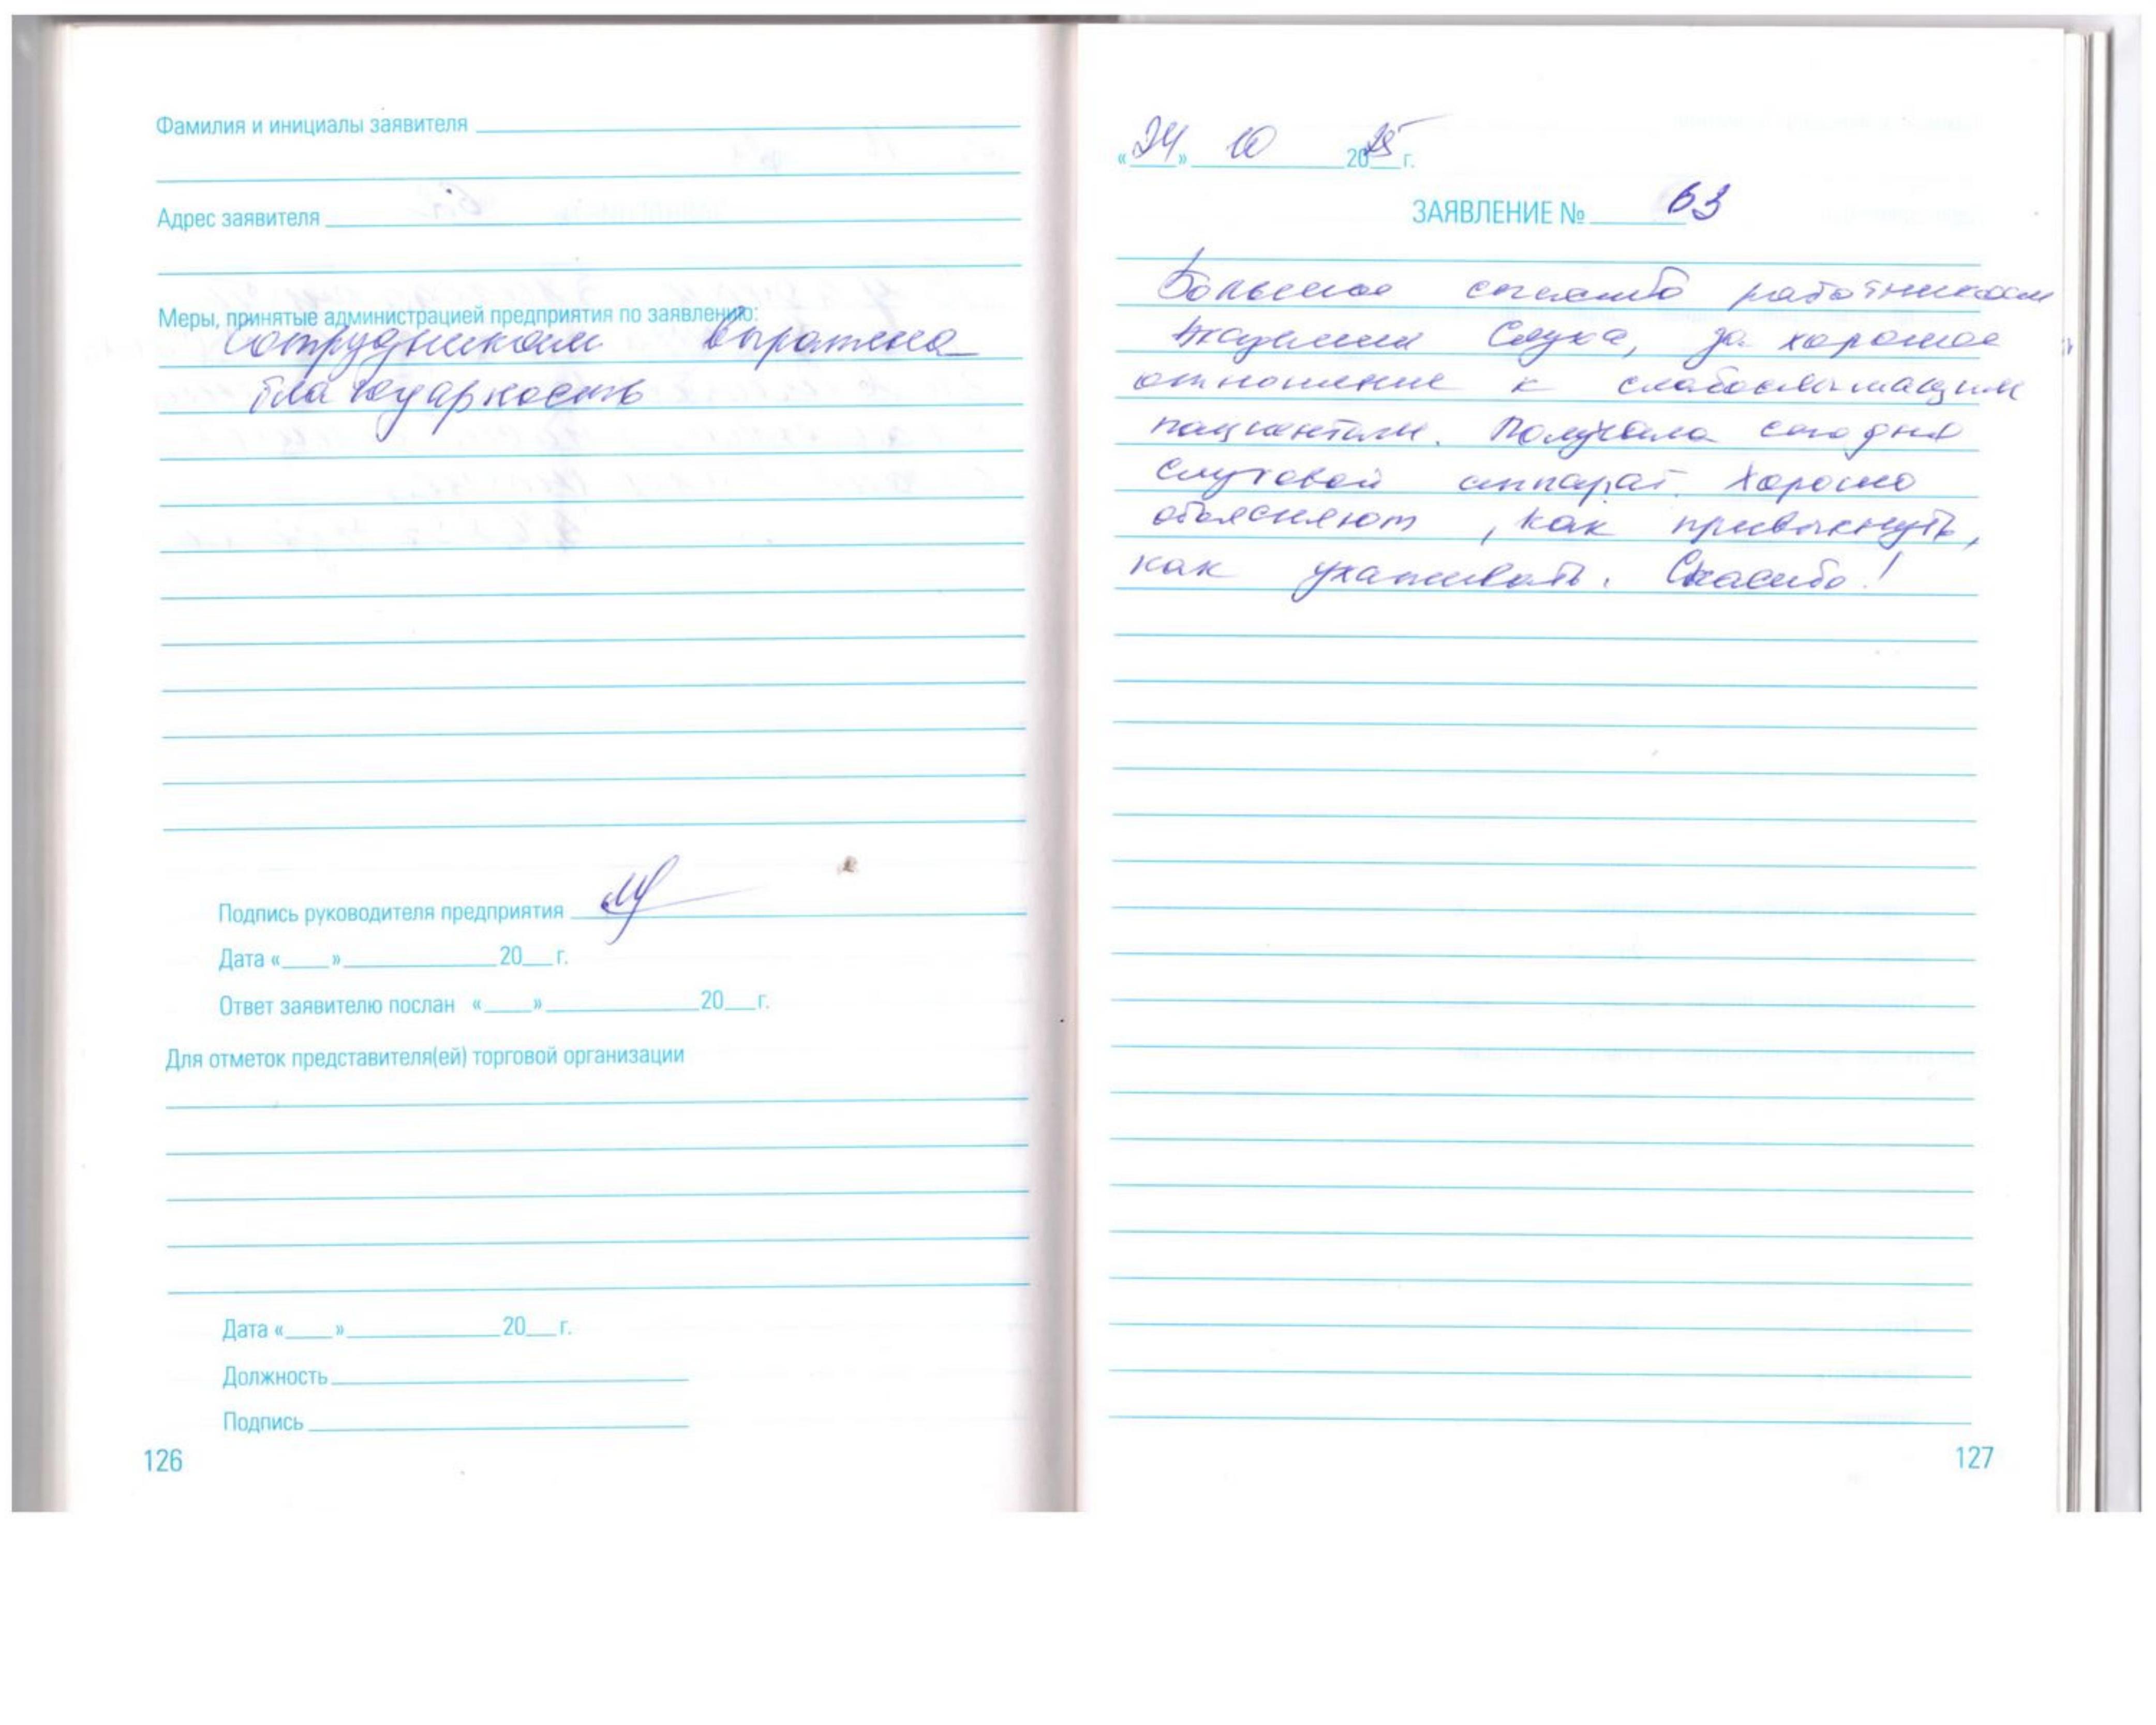 Фамилия и инициалы заявителя
Адрес заявителя
Меры, принятые администрацией предприятия по заявлению:
Сотрудникам выражена
благодарность
Подпись руководителя предприятия
Дата «____»____________20___г.
Ответ заявителю послан «____»____________20___г.
Для отметок представителя(ей) торговой организации
Дата «____»____________20___г.
Должность
Подпись
126
«24» 10 2025 г.
ЗАЯВЛЕНИЕ № 63
Большое спасибо работникам
Академии Слуха, за хорошое
отношение к слабослышащим
пациентам. Получила сегодня
слуховой аппарат. Хорошо
объясняют, как привыкнуть,
как ухаживать. Спасибо!
127